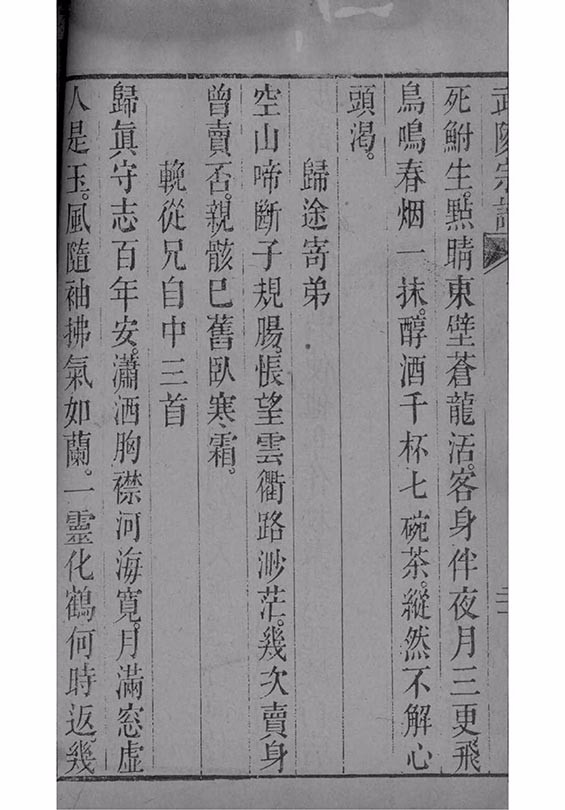 死鮒生。點睛東壁蒼龍活。客身伴夜月三更。飛
鳥鳴春烟一抹。醇酒千杯七碗茶。縱然不解心
頭渴。
歸途寄弟
空山啼斷子規腸。悵望雲衢路渺茫。幾次賣身
曾賣否。親骸已舊臥寒霜。
輓從兄自中三首
歸眞守志百年安。瀟洒胸襟河海寬。月滿窓虛
人是玉。風隨袖拂氣如蘭。一靈化鶴何時返。幾